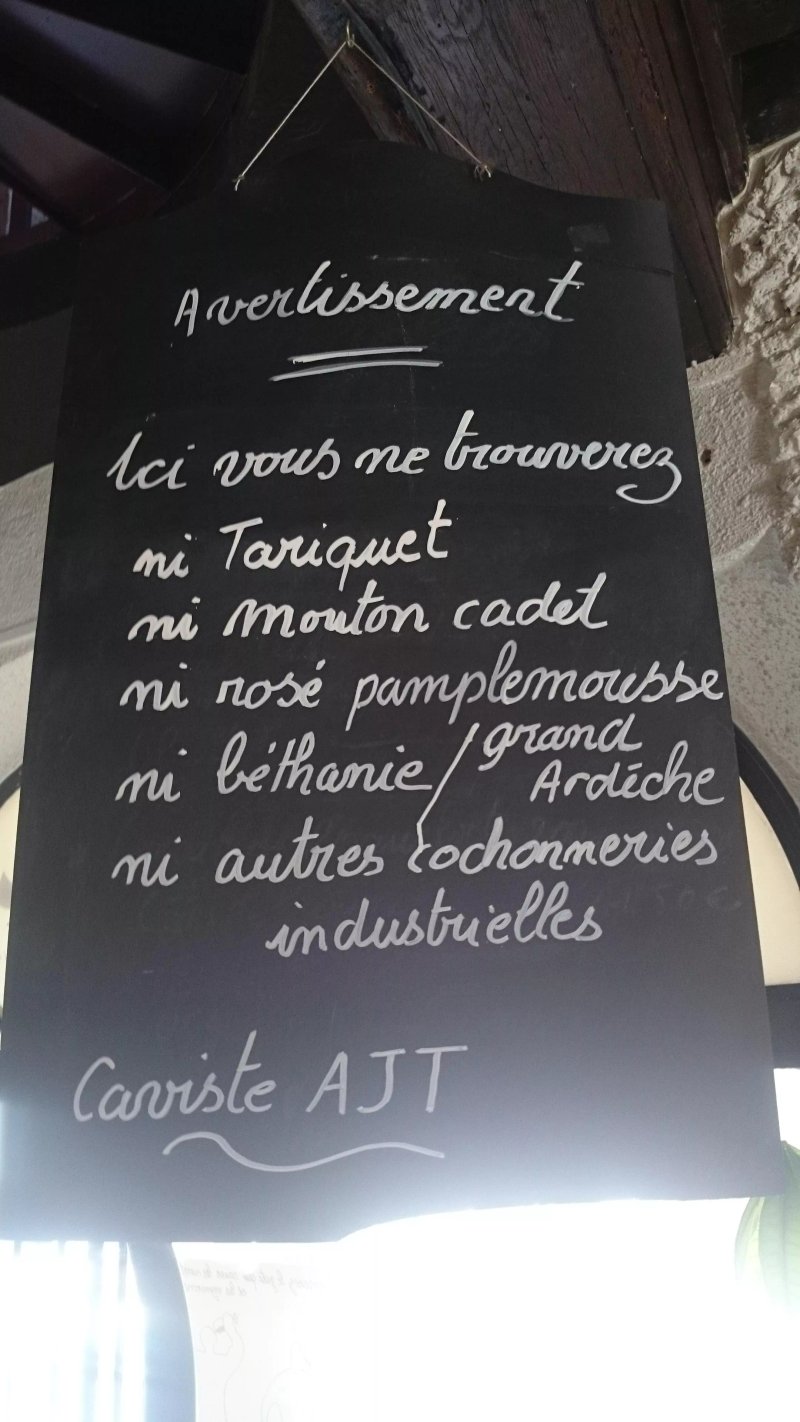 Avertissement
Ici vous ne trouverez
ni Tariquet
ni mouton cadet
ni rosé pamplemousse
ni béthanie / grand
Ardèche
ni autres cochonneries
industrielles
Caviste AJT